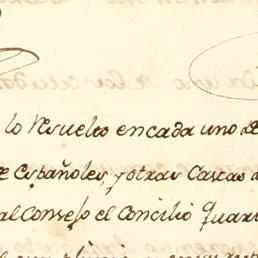 lo resuelto encada uno de
e españoles y otras Castas d
al Consejo el Concilio Quar